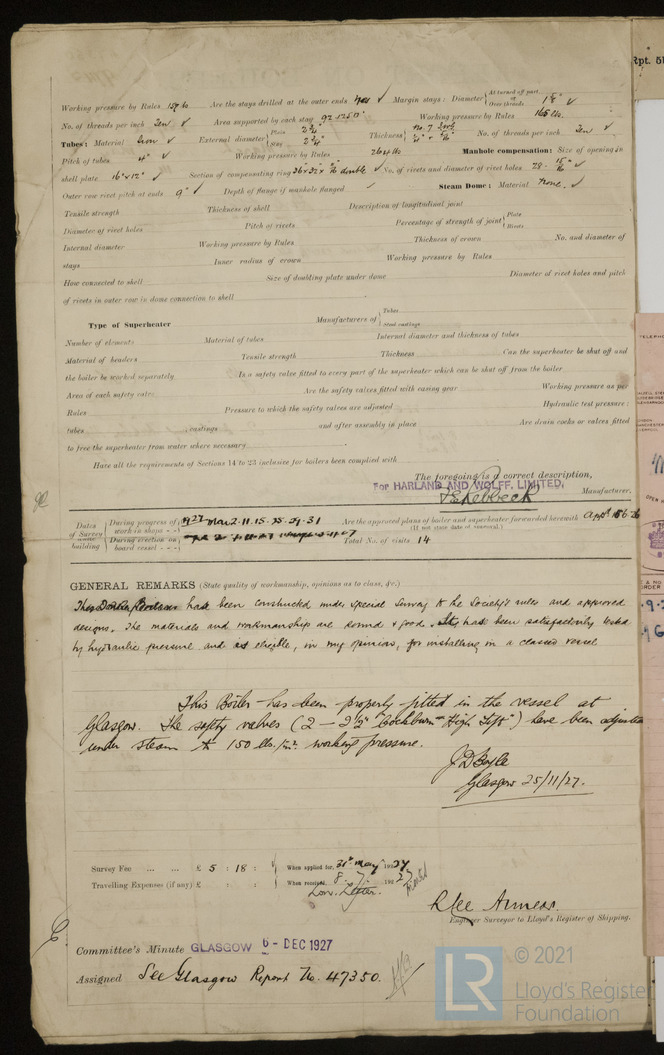 Rpt. 5
Working pressure by Rules 159 lb Are the stays drilled at the outer ends Yes ✓ Margin stays: Diameter { At turned off part, or Over threads 1 5/8" ✓
No. of threads per inch Ten ✓ Area supported by each stay Working pressure by Rules 165 lb.
Tubes: Material Iron ✓ External diameter { Plain 2 1/2" Stay 2 1/2" Thickness { No. of threads per inch Ten ✓
Pitch of tubes 4" ✓ Working pressure by Rules 264 lb Manhole compensation: Size of opening in
shell plate 16" x 12" ✓ Section of compensating ring double ✓ No. of rivets and diameter of rivet holes 28 - 15/16 ✓
Outer row rivet pitch at ends 9" ✓ Depth of flange if manhole flanged ✓ Steam Dome: Material None. ✓
Tensile strength Thickness of shell Description of longitudinal joint
Diameter of rivet holes Pitch of rivets Percentage of strength of joint { Plate Rivets
Internal diameter Working pressure by Rules Thickness of crown No. and diameter of
stays Inner radius of crown Working pressure by Rules
How connected to shell Size of doubling plate under dome Diameter of rivet holes and pitch
of rivets in outer row in dome connection to shell
Type of Superheater Manufacturers of { Tubes Steel castings
Number of elements Material of tubes Internal diameter and thickness of tubes
Material of headers Tensile strength Thickness Can the superheater be shut off and
the boiler be worked separately Is a safety valve fitted to every part of the superheater which can be shut off from the boiler
Area of each safety valve Are the safety valves fitted with easing gear Working pressure as per
Rules Pressure to which the safety valves are adjusted Hydraulic test pressure:
tubes castings and after assembly in place Are drain cocks or valves fitted
to free the superheater from water where necessary
Have all the requirements of Sections 14 to 23 inclusive for boilers been complied with
The foregoing is a correct description,
For HARLAND AND WOLFF, LIMITED,
Manufacturer.
Dates of Survey while building { During progress of work in shops - - 1927 Mar 2. 11. 15. 25. 29. 31 Are the approved plans of boiler and superheater forwarded herewith
(If not state date of approval.)
During erection on board vessel - - - Total No. of visits 14
GENERAL REMARKS (State quality of workmanship, opinions as to class, &c.)
have been constructed under special survey to the Society's rules and approved
designs. The materials and workmanship are sound & good. have been satisfactorily tested
by hydraulic pressure and is eligible, in my opinion, for installing in a classed vessel
This Boiler has been properly fitted in the vessel at
Glasgow. The safety valves (2 - 2½" "Cockburn" High Lift") have been adjusted
under steam to 150 lbs./in². working pressure.
J D Boyle
Glasgow 25/11/27.
Survey Fee ... ... £ 5 : 18 : When applied for, 31st May 1927
Travelling Expenses (if any) £ : : When received, 8. 7. 1927
Lon. Letter.
Engineer Surveyor to Lloyd's Register of Shipping.
Committee's Minute GLASGOW 6 - DEC 1927
Assigned See Glasgow Report No. 47350.
LR © 2021
Lloyd's Register
Foundation